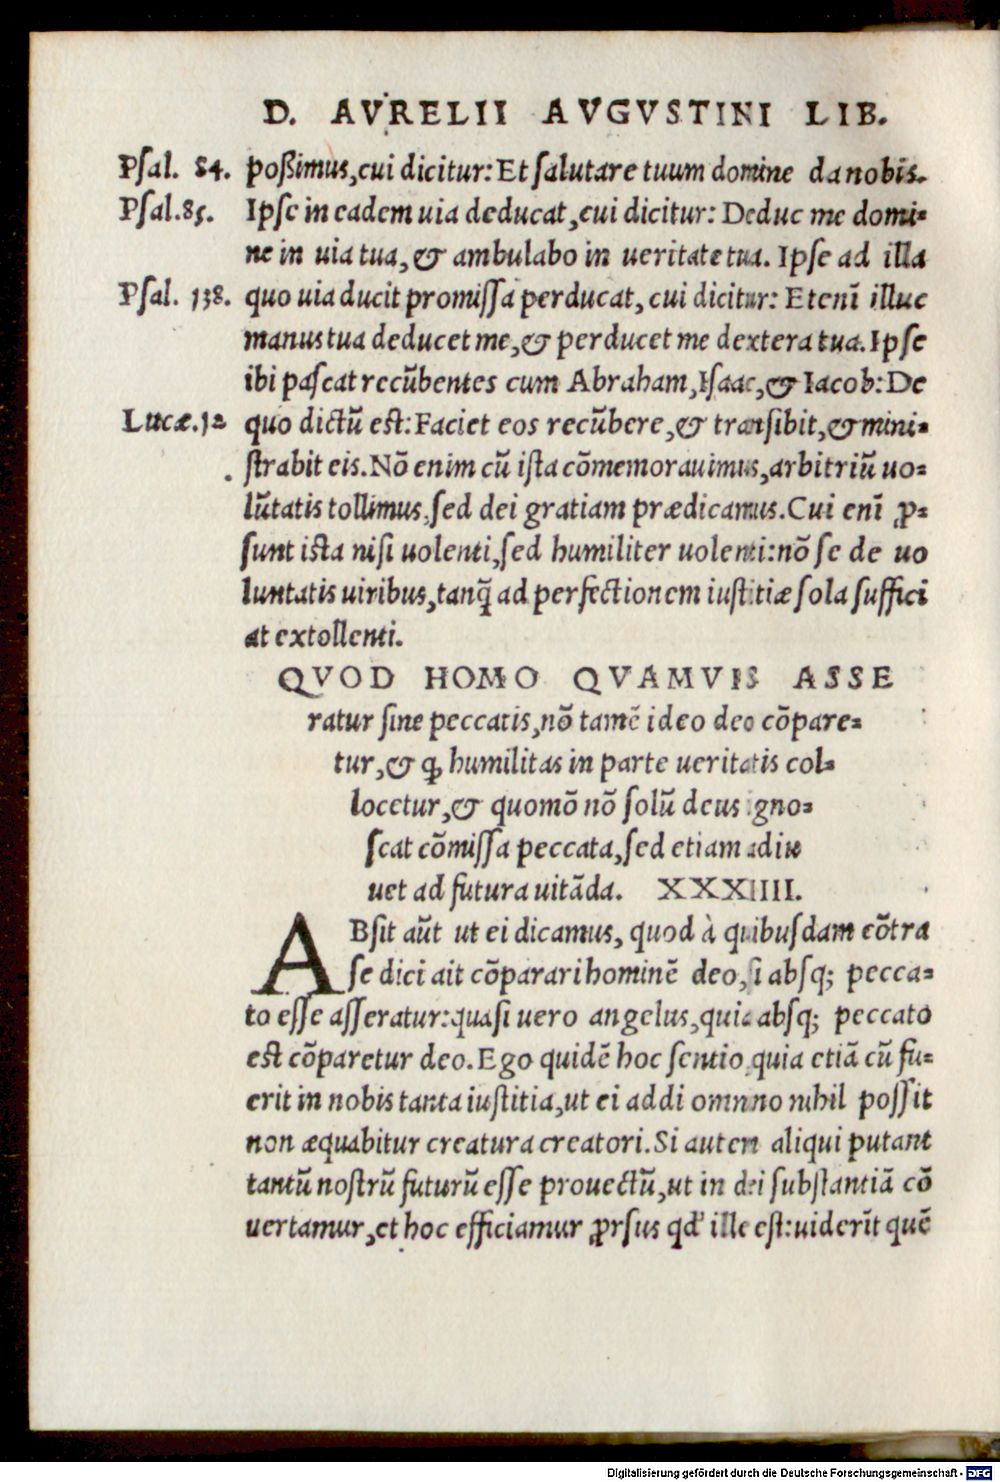 D. AVRELII AVGVSTINI LIB.
Psal. 84. poßimus, cui dicitur: Et salutare tuum domine da nobis.
Psal. 85. Ipse in eadem uia deducat, cui dicitur: Deduc me domi-
ne in uia tua, & ambulabo in ueritate tua. Ipse ad illa
Psal. 138. quo uia ducit promissa perducat, cui dicitur: Etenĩ illuc
manus tua deducet me, & perducet me dextera tua. Ipse
ibi pascat recũbentes cum Abraham, Isaac, & Iacob: De
Lucæ. 12 quo dictũ est: Faciet eos recũbere, & transibit, & mini-
strabit eis. Nõ enim cũ ista cõmemorauimus, arbitriũ uo-
lũtatis tollimus, sed dei gratiam prædicamus. Cui enĩ ꝓ-
sunt ista nisi uolenti, sed humiliter uolenti: nõ se de uo
luntatis uiribus, tanq̃ ad perfectionem iustitiæ sola suffici
at extollenti.
QVOD HOMO QVAMVIS ASSE
ratur sine peccatis, nõ tamẽ ideo deo cõpare-
tur, & ꝙ humilitas in parte ueritatis col-
locetur, & quomõ nõ solũ deus igno-
scat cõmissa peccata, sed etiam adiu
uet ad futura uitãda. XXXIIII.
ABsit aũt ut ei dicamus, quod à quibusdam cõtra
se dici ait cõparari hominẽ deo, si absq; pecca-
to esse asseratur: quasi uero angelus, quia absq; peccato
est cõparetur deo. Ego quidẽ hoc sentio, quia etiã cũ fu-
erit in nobis tanta iustitia, ut ei addi omnino nihil possit
non æquabitur creatura creatori. Si autem aliqui putant
tantũ nostrũ futurũ esse prouectũ, ut in dei substantiã cõ
uertamur, et hoc efficiamur ꝓrsus qd' ille est: uiderĩt quẽ
Digitalisierung gefördert durch die Deutsche Forschungsgemeinschaft - DFG